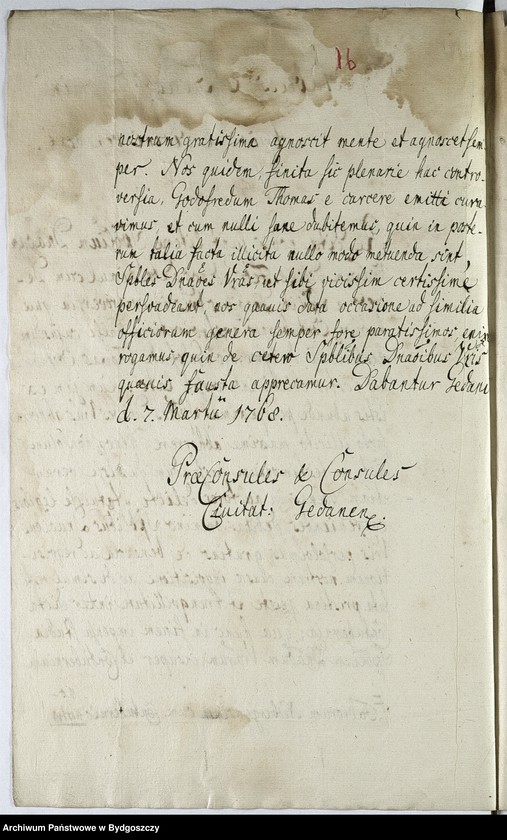 16
nostrum gratissima agnoscit mente et agnoscet sem-
per. Nos quidem, finita sic plenarie hac contro-
versia, Godofredum Thomas e carcere emitti cura
vimus, et cum nulli sane dubitemus, quin in poste-
rum talia facta illicita nullo modo metuenda sint,
Spbles Dnaões Vrãs, ut sibi vicissim certissime
persvadeant, nos quavis data occasione ad similia
officiorum genera semper fore paratissimos enixe
rogamus, quin de cetero Spblibus Dnãoibus Vris
quævis fausta apprecamur. Dabantur Gedani
d. 7. Martii 1768.
PræConsules & Consules
Civitat: Gedanen
Archiwum Państwowe w Bydgoszczy